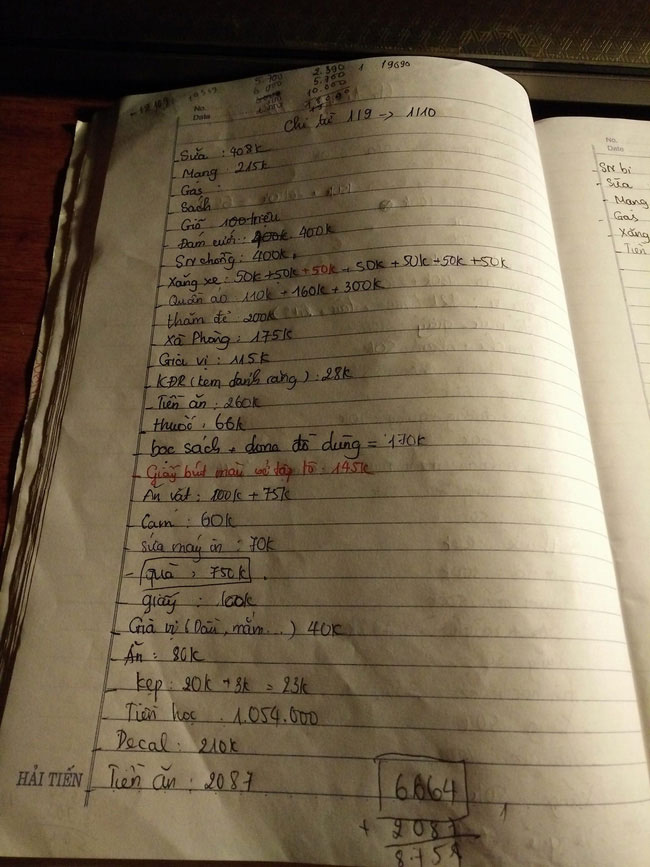 5.700 2.390 1 19690
6.000 5.700
10.000
No.
Date
Chi từ 1/9 -> 1/10
- Sữa : 408k
- Mạng : 215k
- Gas :
- Sách
- Giỗ 100 triệu
- Đám cưới : 400k 400k
- SN chồng : 400k
- Xăng xe : 50k + 50k + 50k + 50k + 50k + 50k + 50k
- Quần áo 110k + 160k + 300k
- thăm đẻ 200k
- Xà Phòng : 175k
- Gia vị : 115k
- KĐR (kem đánh răng) : 28k
- Tiền ăn : 260k
- thuốc : 66k
- bọc sách + dụng đồ dùng = 170k
- Giấy bút màu vẽ tập tô : 145k
- Ăn vặt : 100k + 75k
- Cam : 60k
- sửa máy in : 70k
- quà : 750k
- giấy : 160k
- Gia vị (Dầu, mắm...) 40k
- Ăn : 80k
- kẹp : 20k + 3k = 23k
- Tiền học : 1.054.000
- Decal : 210k
- Tiền ăn : 2087
6664
+ 2087
8.751
HẢI TIẾN
No.
Date
SN bi
- Sữa
- Mạng
- Gas
- Xăng
- Tiền